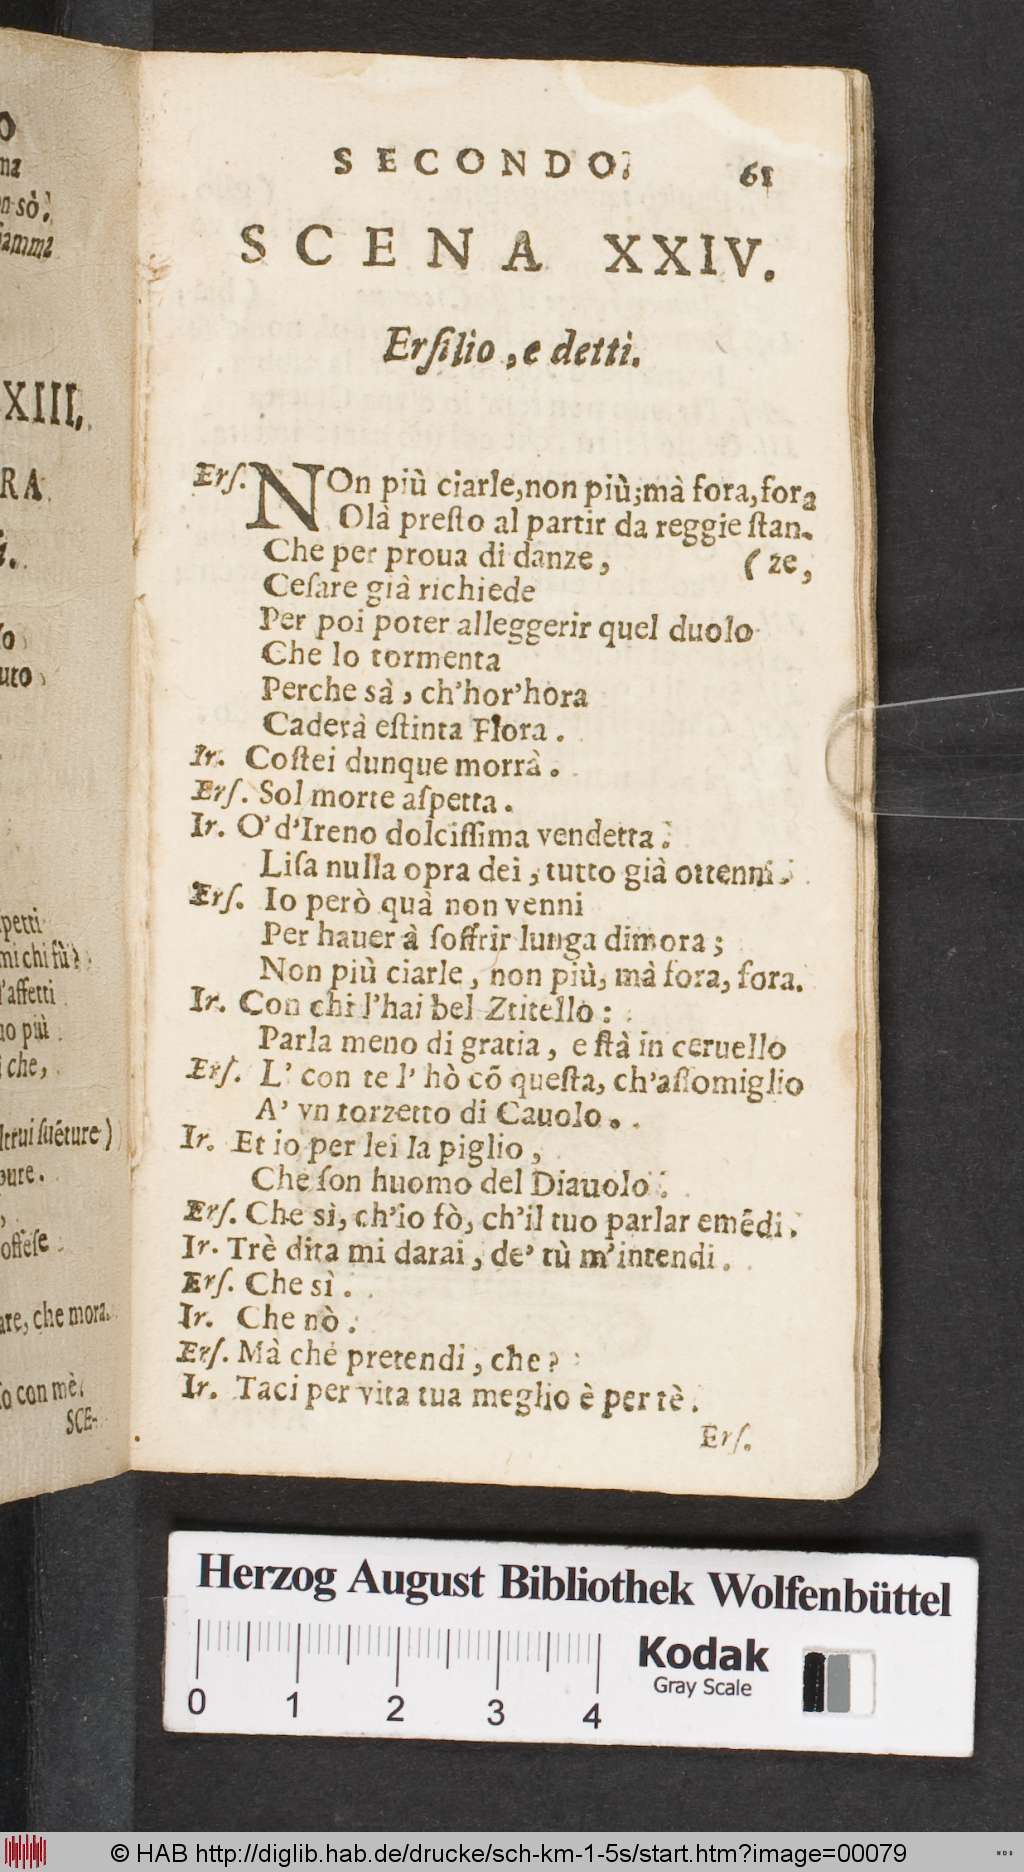 SECONDO. 61
SCENA XXIV.
Erſilio, e detti.
Erſ. NOn più ciarle, non più; mà fora, fora
Olà preſto al partir da reggie ſtan-
Che per proua di danze, (ze,
Ceſare già richiede
Per poi poter alleggerir quel duolo
Che lo tormenta
Perche sà, ch'hor'hora
Caderà eſtinta Flora.
Ir. Coſtei dunque morrà.
Erſ. Sol morte aſpetta.
Ir. O' d'Ireno dolciſſima vendetta.
Liſa nulla opra dei, tutto già ottenni.
Erſ. Io però quà non venni
Per hauer à ſoffrir lunga dimora;
Non più ciarle, non più, mà fora, fora.
Ir. Con chi l'hai bel Ztitello:
Parla meno di gratia, e ſtà in ceruello
Erſ. L' con te l' hò cō queſta, ch'aſſomiglio
A' vn torzetto di Cauolo.
Ir. Et io per lei la piglio,
Che ſon huomo del Diauolo.
Erſ. Che sì, ch'io fò, ch'il tuo parlar emēdi.
Ir. Trè dita mi darai, de' tù m'intendi.
Erſ. Che sì.
Ir. Che nò.
Erſ. Mà che pretendi, che?
Ir. Taci per vita tua meglio è per tè.
Erſ.
XIII.
RA
uto
petti
mi chi fù?
l'affetti
no più
che,
ltrui ſuēture)
offeſe
are, che mora.
con mè.
SCE-
Herzog August Bibliothek Wolfenbüttel
0 1 2 3 4
Kodak
Gray Scale
© HAB http://diglib.hab.de/drucke/sch-km-1-5s/start.htm?image=00079